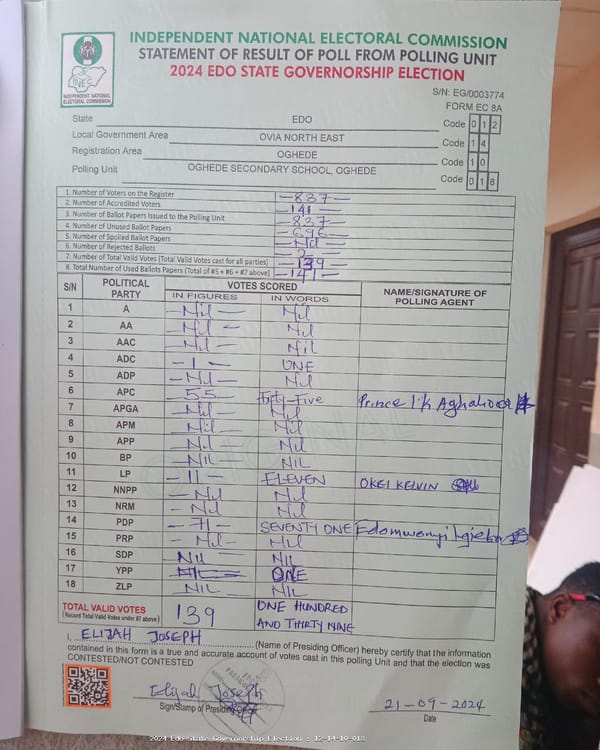 INDEPENDENT NATIONAL ELECTORAL COMMISSION
STATEMENT OF RESULT OF POLL FROM POLLING UNIT
2024 EDO STATE GOVERNORSHIP ELECTION
INEC
INDEPENDENT NATIONAL ELECTORAL COMMISSION
S/N: EG/0003774
FORM EC 8A
State EDO Code 0 1 2
Local Government Area OVIA NORTH EAST Code 1 4
Registration Area OGHEDE Code 1 0
Polling Unit OGHEDE SECONDARY SCHOOL, OGHEDE Code 0 1 8
1. Number of Voters on the Register —837—
2. Number of Accredited Voters —141—
3. Number of Ballot Papers Issued to the Polling Unit —837—
4. Number of Unused Ballot Papers —696—
5. Number of Spoiled Ballot Papers —Nil—
6. Number of Rejected Ballots —2—
7. Number of Total Valid Votes (Total Valid Votes cast for all parties) —139—
8. Total Number of Used Ballots Papers (Total of #5 + #6 + #7 above) —141—
S/N POLITICAL PARTY VOTES SCORED NAME/SIGNATURE OF POLLING AGENT
IN FIGURES IN WORDS
1 A —Nil— Nil
2 AA —Nil— Nil
3 AAC —Nil— Nil
4 ADC —1— ONE
5 ADP —Nil— Nil
6 APC —55— Fifty-Five Prince I'k
7 APGA —Nil— Nil
8 APM —Nil— Nil
9 APP —Nil— Nil
10 BP —NIL— NIL
11 LP —11— ELEVEN OKEI KELVIN
12 NNPP —Nil— Nil
13 NRM —Nil— Nil
14 PDP —71— SEVENTY ONE
15 PRP —Nil— Nil
16 SDP —Nil— NIL
17 YPP ONE
18 ZLP —NIL— NIL
TOTAL VALID VOTES 139 ONE HUNDRED
(Record Total Valid Votes under #7 above) AND THIRTY NINE
I, ELIJAH JOSEPH (Name of Presiding Officer) hereby certify that the information
contained in this form is a true and accurate account of votes cast in this polling Unit and that the election was
CONTESTED/NOT CONTESTED
Elijah Joseph 21-09-2024
Sign/Stamp of Presiding Officer Date
2024 Edo State Governorship Election - 12-14-10-018